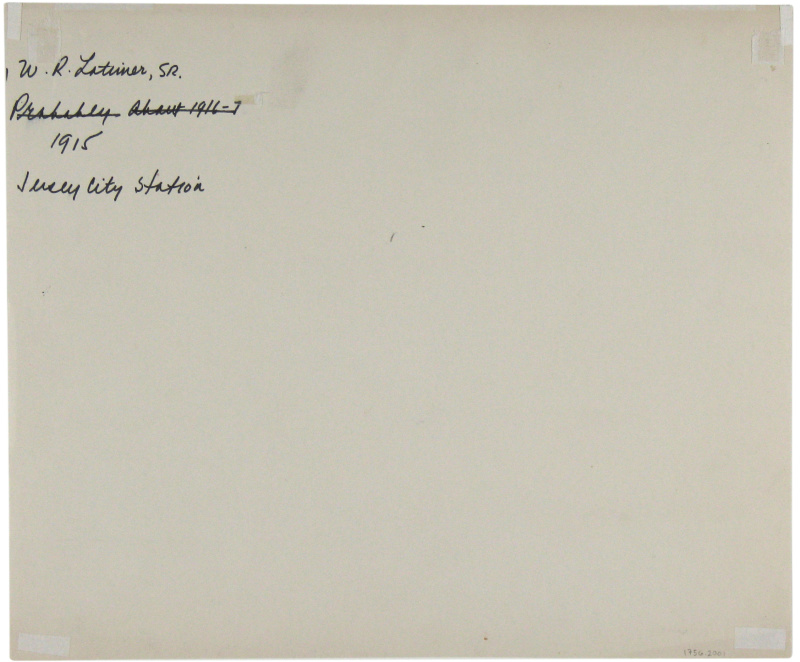 W. R. Latimer, SR.
Probably About 1916-7
1915
Jersey City Station
1756.2001